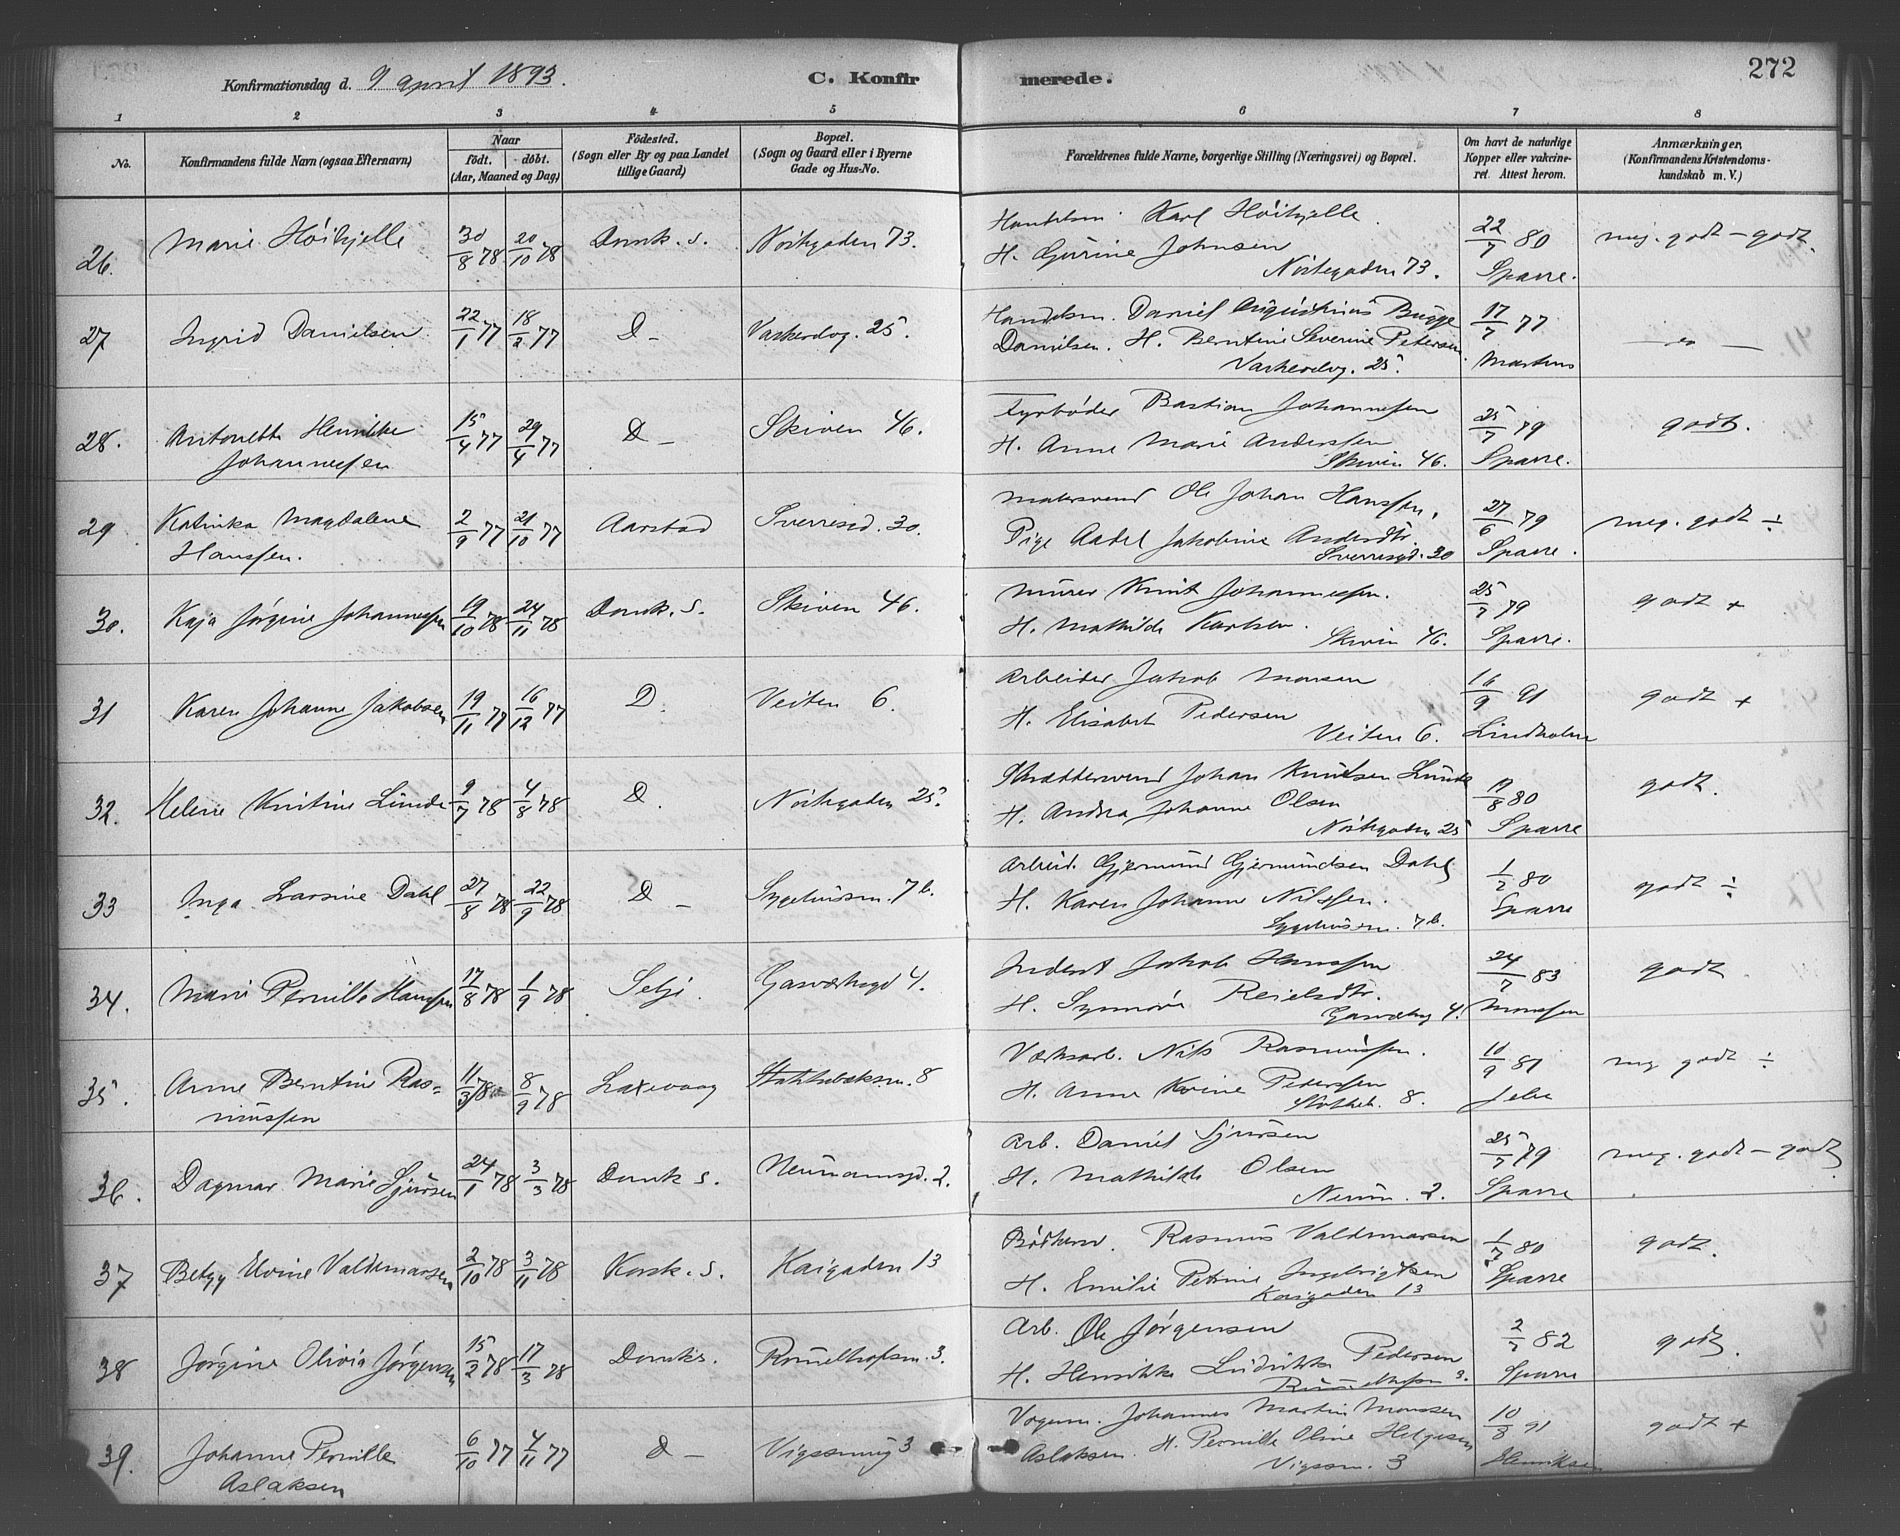 Konfirmationsdag d. 9 april 1893. C. Konfirmerede. 272
1 2 3 4 5 6 7 8
No. Konfirmandens fulde Navn (ogsaa Efternavn) Naar født. døbt. (Aar, Maaned og Dag) Födested. (Sogn eller By og paa Landet tillige Gaard) Bopæl. (Sogn og Gaard eller i Byerne Gade og Hus-No. Forældrenes fulde Navne, borgerlige Stilling (Næringsvei) og Bopæl. Om havt de naturlige Kopper eller vakcineret. Attest herom. Anmærkninger, (Konfirmandens Kristendomskundskab m. V.)
26. Marie Höikjelle 30/8 78 20/10 78 Domk. s. Nöstegaden 73. Handelsm. Karl Höikjelle 22/7 80 meg. godt – godt.
H. Gurine Johnsen
Nöstegaden 73. Sparre.
27 Ingrid Danielsen 22/1 77 18/2 77 D – Vaskerelvg. 25. Handelsm. Daniel Augustinus Bugge 17/7 77
Danielsen. H. Berntine Severine Petersen.
Vaskerelvg. 25. Martens
28. Antonette Henrikke 15/4 77 29/4 77 D – Skiven 46. Fyrbøder Bastian Johannesen 25/7 79 godt.
Johannessen H. Anne Marie Anderssen
Skiven 46. Sparre.
29 Katinka Magdalene 2/9 77 21/10 77 Aarstad Sverresgd. 30. Malersvend Ole Johan Hanssen. 27/6 79 meg. godt ÷
Hanssen. Pige Aadel Jakobine Andersdtr.
Sverresgd. 30 Sparre.
30. Kaja Jørgine Johannessen 19/10 78 24/11 78 Domk. s. Skiven 46. Murer Knut Johannessen. 25/7 79 godt +
H. Mathilde Karlsen.
Skiven 46. Sparre.
31 Karen Johanne Jakobsen 19/11 77 16/12 77 D. Veiten 6. Arbeider Jakob Monsen 16/9 91 godt +
H. Elisabet Pedersen
Veiten 6. Lindholm
32. Helene Kristine Lunde 9/7 78 4/8 78 D. Nöstegaden 25. Skræddersvend Johan Knutsen Lunde 19/8 80 godt.
H. Andrea Johanne Olsen
Nöstegaden 25 Sparre
33 Inga Larsine Dahl 27/8 78 22/9 78 D – Sygehussm. 7 b. Arbeid. Gjermund Gjermundsen Dahl 1/7 80 godt ÷
H. Karen Johanne Nilssen.
7 b. Sparre
34. Marie Pernille Hanssen 17/8 78 1/9 78 Selje. Gasværksgd 4. Inderst Jakob Hanssen 24/7 83 godt
H. Synnøve Reielsdtr.
4. Monssen
35. Anne Berntine Ras- 11/3 78 8/9 78 Laxevaag 8 Værksarb. Nils Rasmussen. 10/9 81 meg godt ÷
mussen H. Anne Pederssen
8.
36. Dagmar Marie Sjursen 24/1 78 3/3 78 Domk s. Neumannsgd. 2. Arb. Daniel Sjursen 25/7 79 meg. godt – godt
H. Mathilde Olsen
Neum. 2. Sparre
37 Betzy Elvine Valdemarsen 2/10 78 3/11 78 Korsk. s. Kaigaden 13 Rasmus Valdemarsen 1/7 80 godt.
H. Emilie Petrine Ingebrigtsen
Kaigaden 13 Sparre
38 Jørgine Olivia Jørgensen 15/2 78 17/3 78 Domks. 3. Arb. Ole Jørgensen 2/7 82 godt.
H. Henrikke Ludvikke Pedersen
3. Sparre
39. Johanne Pernille 6/10 77 4/11 77 D – 3 Vognm. Johannes Martin Monssen 10/3 91 godt +
Aslaksen Aslaksen. H. Pernille Oline Helgesen
3 Henriksen